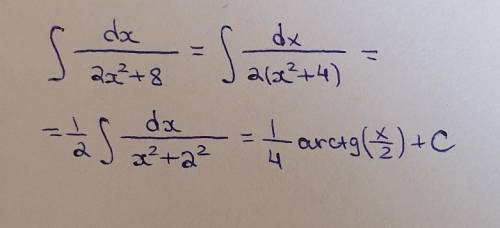 ∫ dx / (2x²+8) = ∫ dx / (2(x²+4)) =
= 1/2 ∫ dx / (x²+2²) = 1/4 arctg(x/2) + C